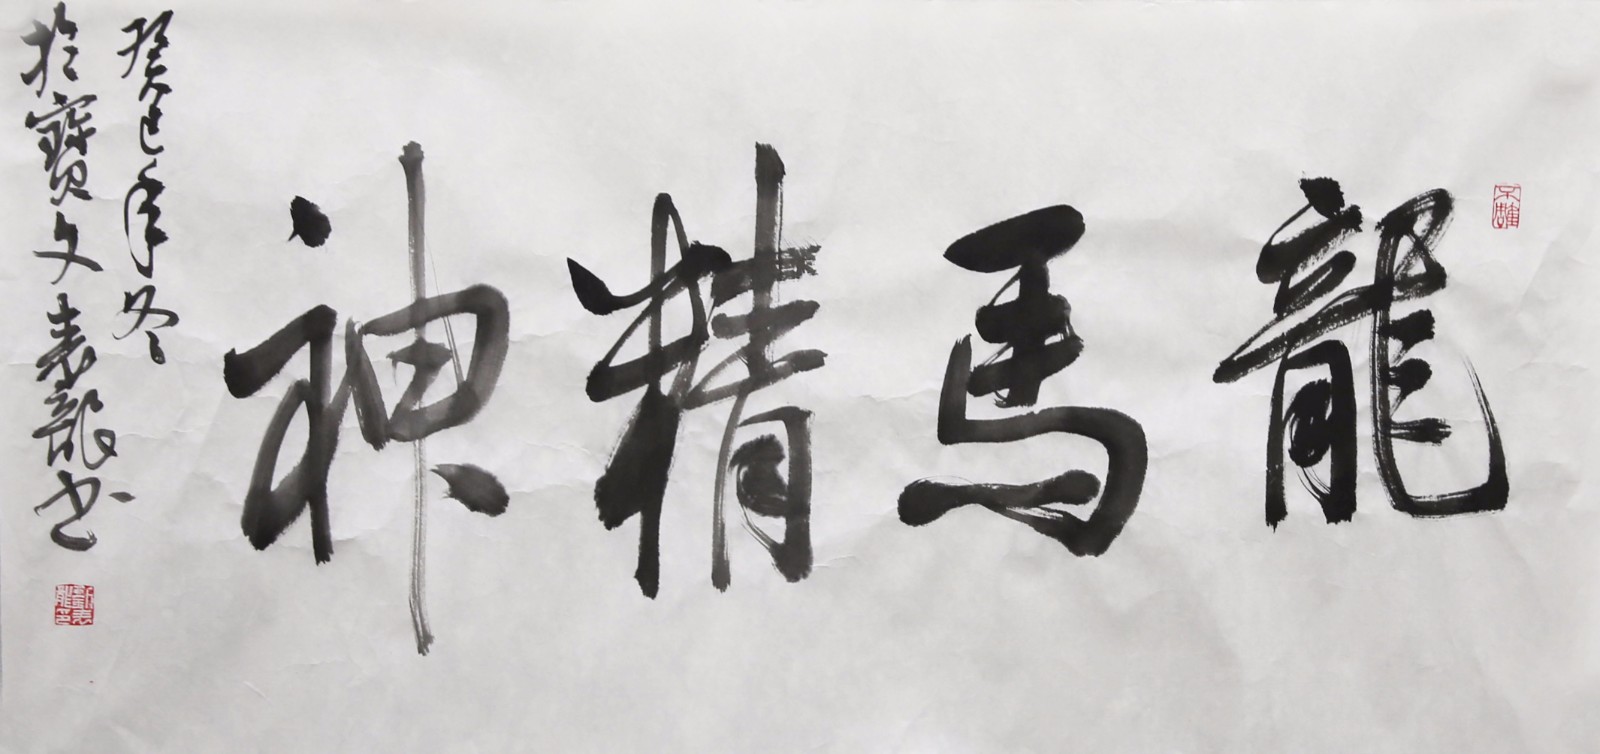 龍馬精神
癸巳年冬
於寶文表龍书